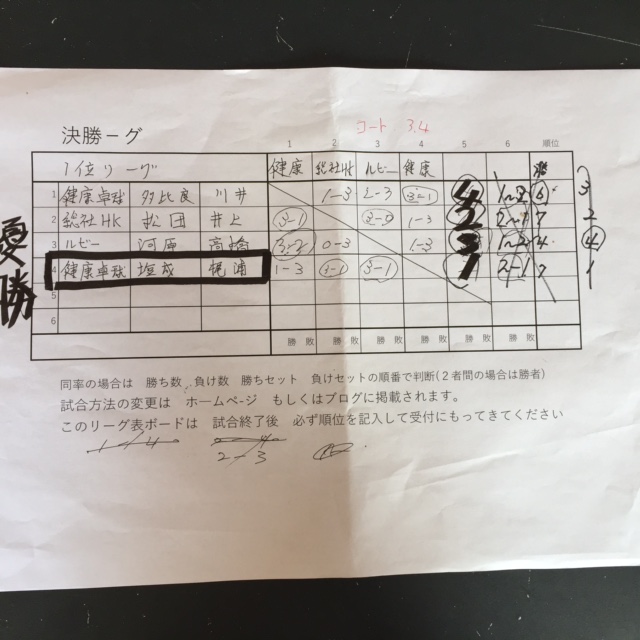 決勝ーグ コート 3.4
1 2 3 4 5 6 順位
1位リーグ 健康 総社HK ルビー 健康
1 健康卓球 多比良 川井 1-3 2-3 3-1 4 1-2 3
2 総社HK 松田 井上 3-1 3-0 1-3 2 2-1 7 2
3 ルビー 河原 高橋 3-2 0-3 1-3 3 1-2 4 4
4 健康卓球 梶浦 1-3 3-1 3-1 1 2-1 7 1
5
6
優勝
勝 敗 勝 敗 勝 敗 勝 敗 勝 敗 勝 敗
同率の場合は 勝ち数 負け数 勝ちセット 負けセットの順番で判断(2者間の場合は勝者)
試合方法の変更は ホームページ もしくはブログに掲載されます。
このリーグ表ボードは 試合終了後 必ず順位を記入して受付にもってきてください
1-4
2-3